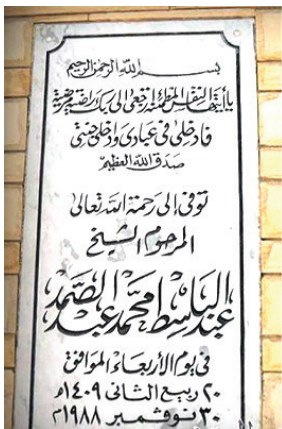 بسم الله الرحمن الرحيم
يا أيتها النفس المطمئنة ارجعى إلى ربك راضية مرضية
فادخلى فى عبادى وادخلى جنتى
صدق الله العظيم
توفى إلى رحمة الله تعالى
المرحوم الشيخ
عبد الباسط محمد عبد الصمد
فى يوم الأربعاء الموافق
٢٠ ربيع الثانى ١٤٠٩هـ
٣٠ نوفمبر ١٩٨٨م